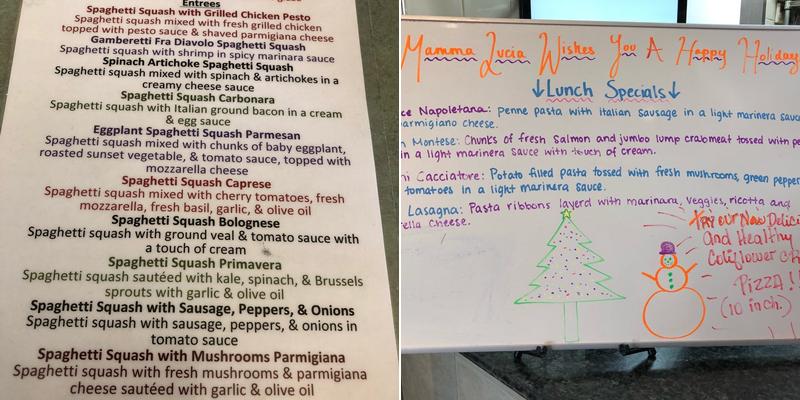 Entrees
Spaghetti Squash with Grilled Chicken Pesto
Spaghetti Squash mixed with fresh grilled chicken
topped with pesto sauce & shaved parmigiana cheese
Gamberetti Fra Diavolo Spaghetti Squash
Spaghetti squash with shrimp in spicy marinara sauce
Spinach Artichoke Spaghetti Squash
Spaghetti squash mixed with spinach & artichokes in a
creamy cheese sauce
Spaghetti Squash Carbonara
Spaghetti squash with Italian ground bacon in a cream
& egg sauce
Eggplant Spaghetti Squash Parmesan
Spaghetti squash mixed with chunks of baby eggplant,
roasted sunset vegetable, & tomato sauce, topped with
mozzarella cheese
Spaghetti Squash Caprese
Spaghetti squash mixed with cherry tomatoes, fresh
mozzarella, fresh basil, garlic, & olive oil
Spaghetti Squash Bolognese
Spaghetti squash with ground veal & tomato sauce with
a touch of cream
Spaghetti Squash Primavera
Spaghetti squash sautéed with kale, spinach, & Brussels
sprouts with garlic & olive oil
Spaghetti Squash with Sausage, Peppers, & Onions
Spaghetti squash with sausage, peppers, & onions in
tomato sauce
Spaghetti Squash with Mushrooms Parmigiana
Spaghetti squash with fresh mushrooms & parmigiana
cheese sautéed with garlic & olive oil
Mamma Lucia Wishes You A Happy Holiday
↓Lunch Specials↓
ce Napoletana: penne pasta with italian sausage in a light marinera sauc
parmigiano cheese.
n Montese: Chunks of fresh salmon and jumbo lump crabmeat tossed with pe
in a light marinera sauce with touch of cream.
ni Cacciatore: Potato filled pasta tossed with fresh mushrooms, green pepper
tomatoes in a light marinera sauce.
Lasagna: Pasta ribbons layerd with marinara, veggies, ricotta and
rella cheese.
Try our New Delici
and Healthy
Coliflower Ch
Pizza!!
(10 inch.)